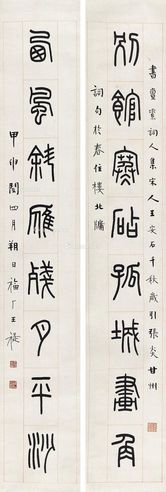 別館寒砧孤城畫角
書詞人集宋人王安石千秋歲引張炎甘州
詞句於春住樓北牖
西風斜雁殘月平沙
甲申閏四月朔日福厂王禔